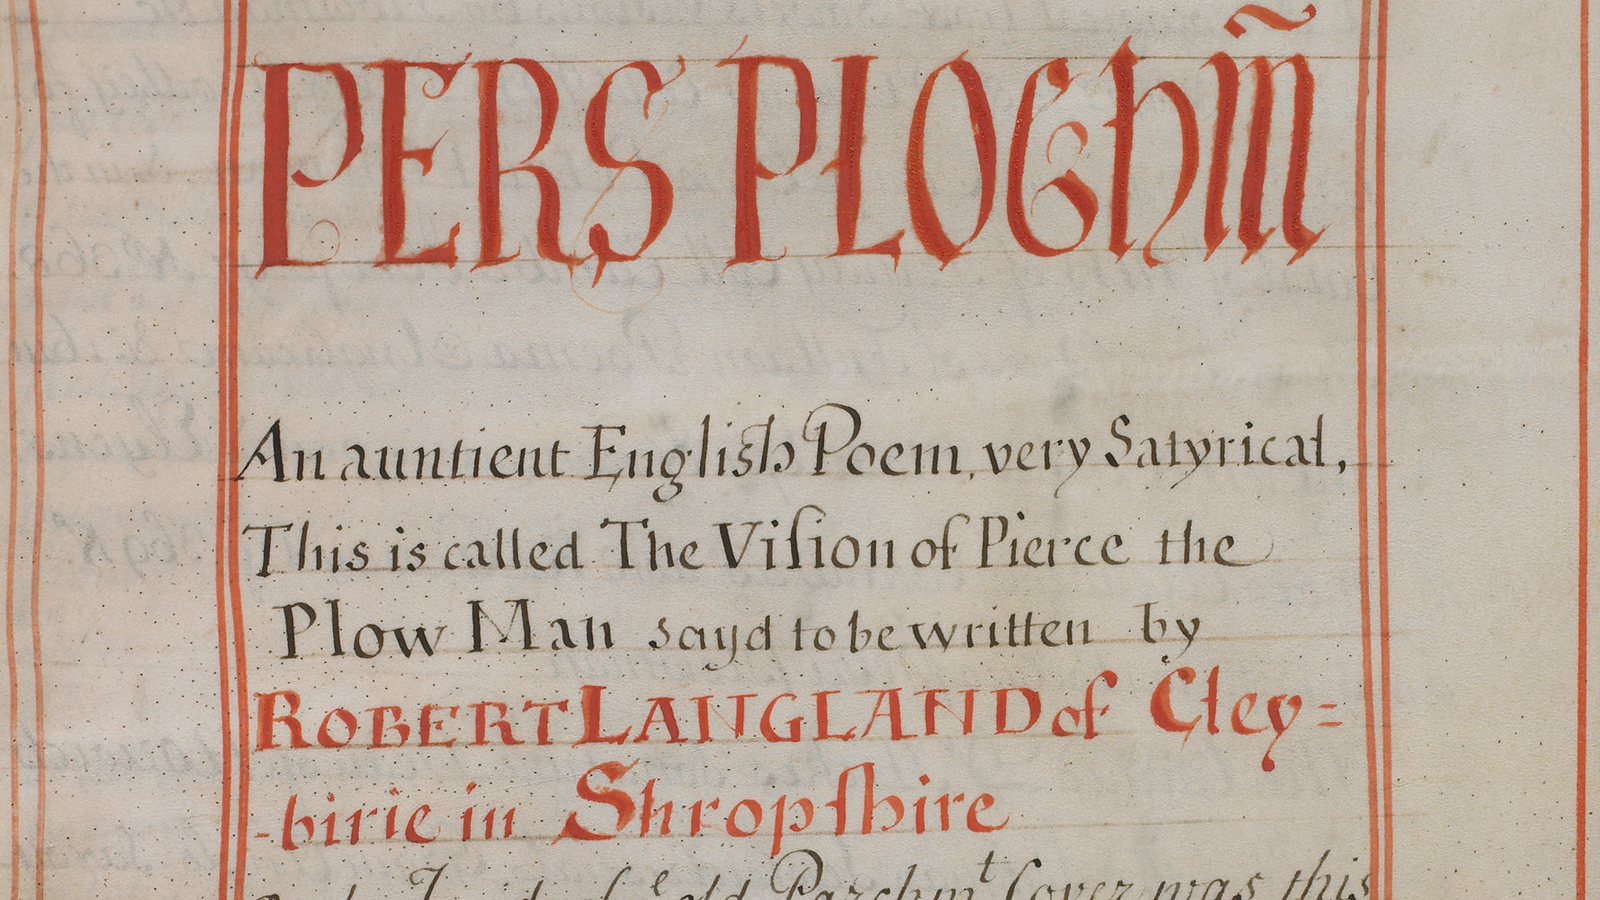 PERS PLOGHM̃
An auntient English Poem, very Satyrical,
This is called The Viſion of Pierce the
Plow Man sayd to be written by
ROBERT LANGLAND of Cley=
-birie in Shropſhire
old Parchmᵗ Cover was this